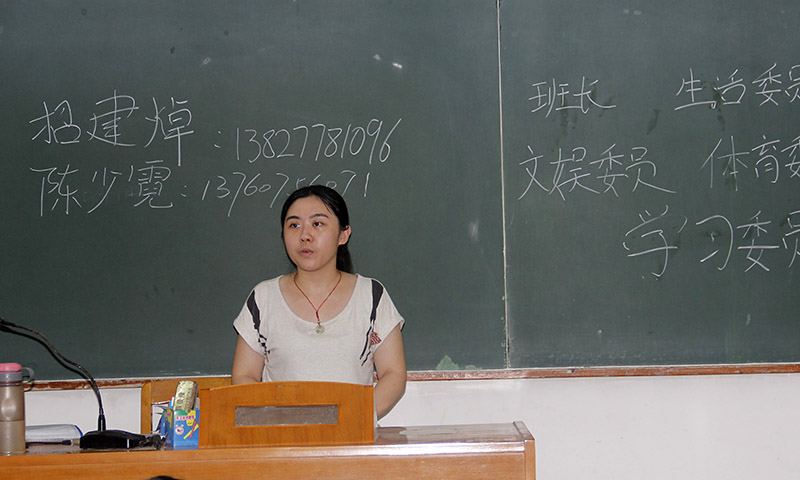 招建焯:13827781096
陈少霓:13760756071
班长 生活委员
文娱委员 体育委
学习委员